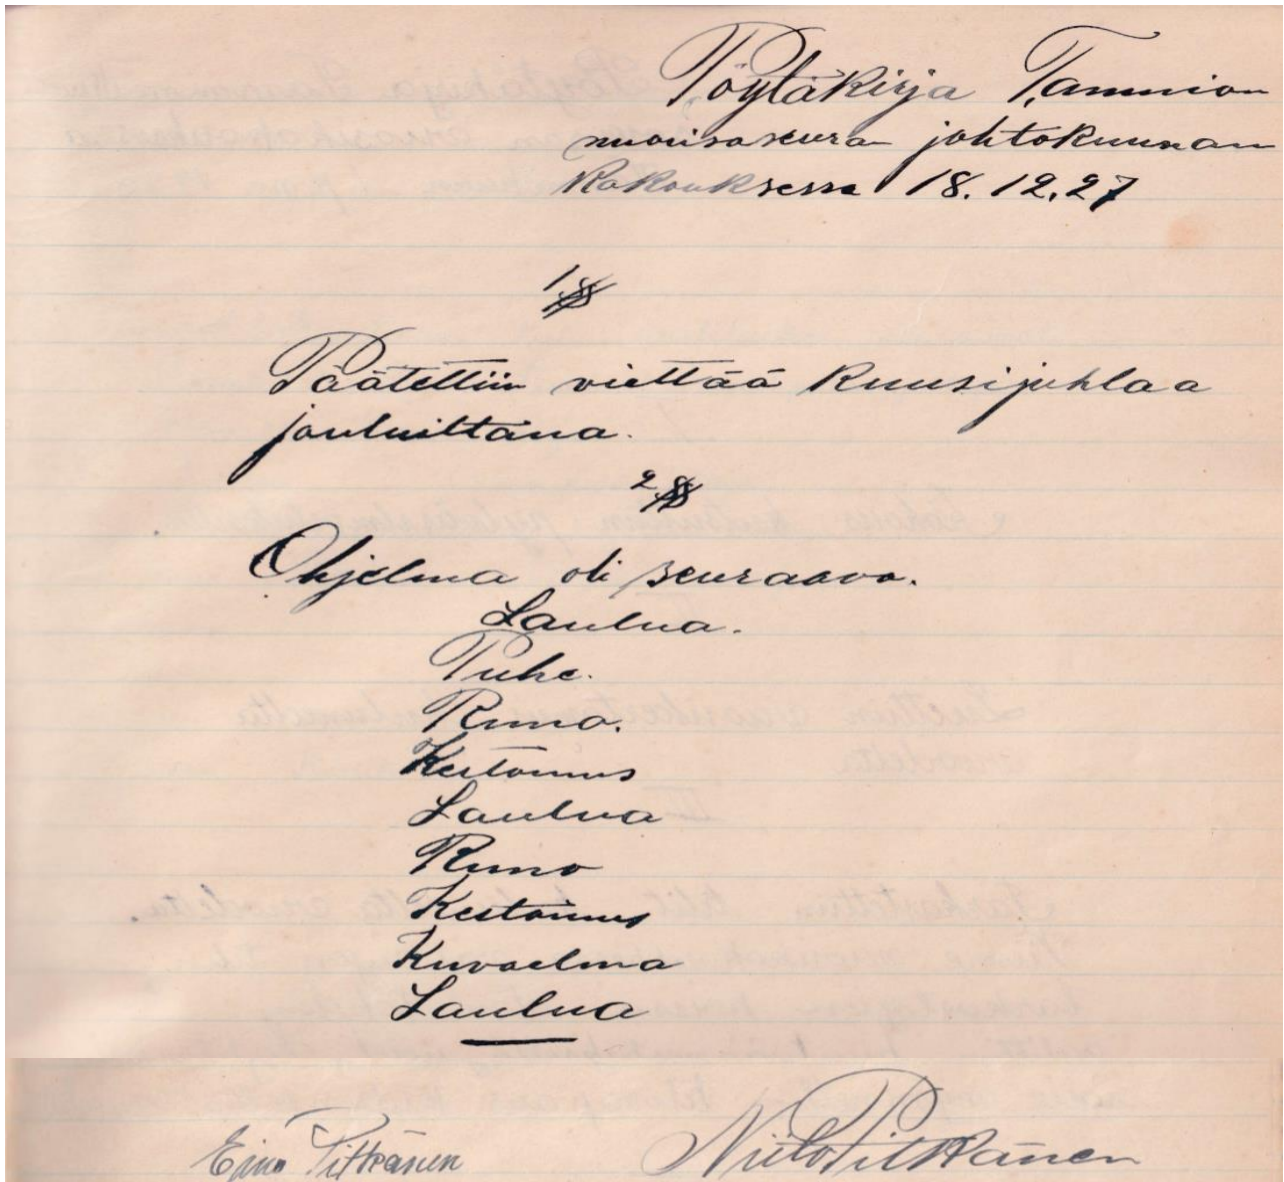 Pöytäkirja Tammion
nuorisoseura johtokunnan
Kokouksessa 18.12.27
1 §
Päätettiin viettää Kuusijuhlaa
jouluiltana.
2 §
Ohjelma oli seuraava.
Laulua.
Puhe.
Runo.
Kertomus
Laulua
Runo
Kertomus
Kuvaelma
Laulua
Eino Pitkänen Niilo Pitkänen